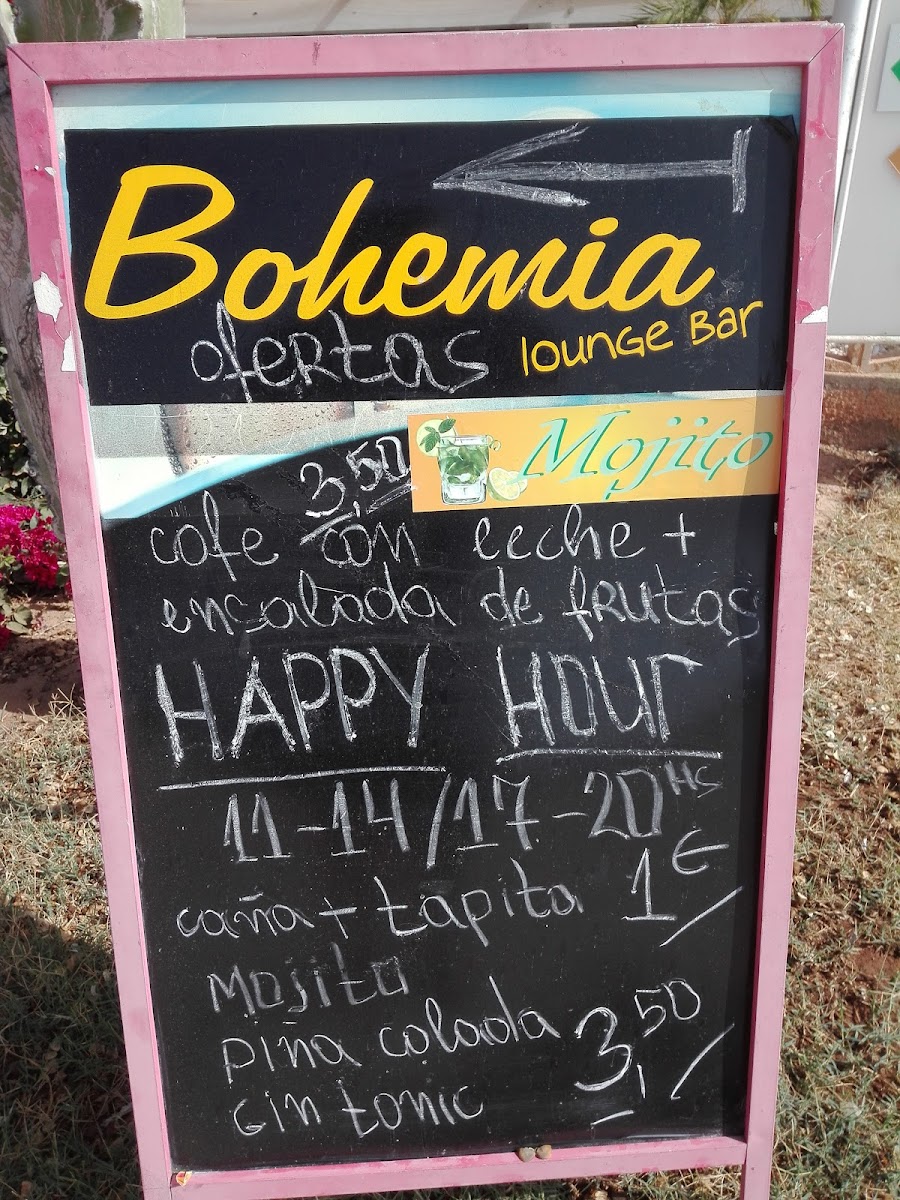 Bohemia
lounge Bar
ofertas
Mojito
3,50
cafe con leche +
ensalada de frutas
HAPPY HOUr
11-14/17-20HS
caña + tapita 1€
Mojito
piña colada 3,50
Gin tonic